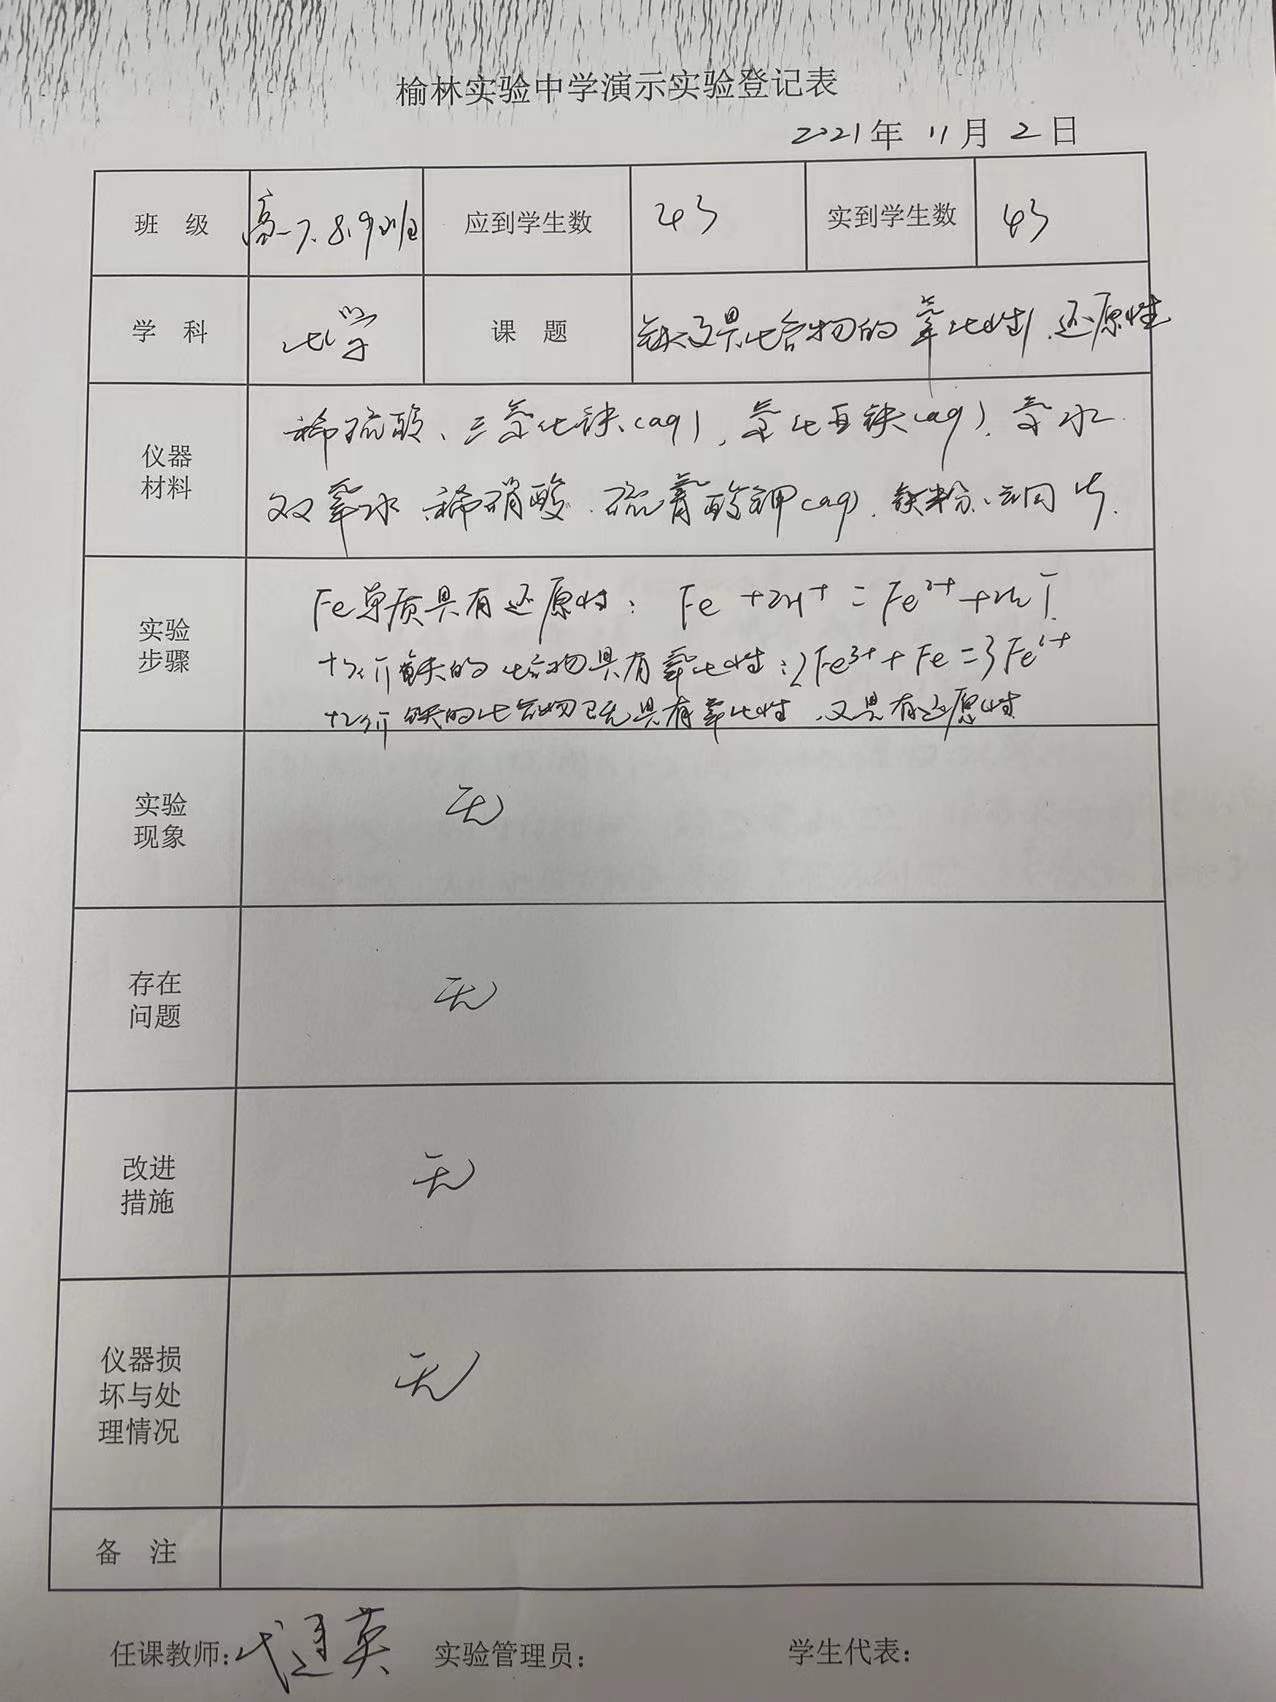 榆林实验中学演示实验登记表
2021年 11月 2日
班 级 高一7.8.9班 应到学生数 43 实到学生数 43
学 科 化学 课 题 铁及其化合物的氧化性、还原性
仪器
材料
稀硫酸、三氯化铁(aq)、氯化亚铁(aq)、氯水
双氧水、稀硝酸、硫氰酸钾(aq)、铁粉、铜片.
实验
步骤
Fe单质具有还原性: Fe +2H⁺ = Fe²⁺ +H₂↑
+3价铁的化合物具有氧化性:2Fe³⁺ + Fe =3Fe²⁺
+2价铁的化合物既具有氧化性、又具有还原性
实验
现象
无
存在
问题
无
改进
措施
无
仪器损
坏与处
理情况
无
备 注
任课教师: 实验管理员: 学生代表: